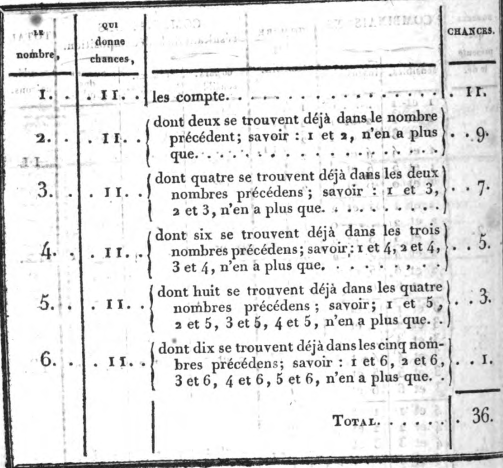 LE nombre,
QUI donne chances,
CHANCES.
1. . . 11. . les compte. . . . . . . . . . . . . . 11.
dont deux se trouvent déjà dans le nombre
2. . . 11. . précédent; savoir : 1 et 2, n'en a plus . . 9.
que. . . . . . . . . . . . . . . .
dont quatre se trouvent déjà dans les deux
3. . . 11. . nombres précédens ; savoir : 1 et 3, . . 7.
2 et 3, n'en a plus que. . . . . . . .
dont six se trouvent déjà dans les trois
4. . . 11. . nombres précédens; savoir; 1 et 4, 2 et 4, . . 5.
3 et 4, n'en a plus que. . . . . . . .
dont huit se trouvent déjà dans les quatre
5. . . 11. . nombres précédens ; savoir; 1 et 5, . . 3.
2 et 5, 3 et 5, 4 et 5, n'en a plus que. .
dont dix se trouvent déjà dans les cinq nom-
6. . . 11. . bres précédens; savoir : 1 et 6, 2 et 6, . . 1.
3 et 6, 4 et 6, 5 et 6, n'en a plus que. .
TOTAL. . . . . . . 36.